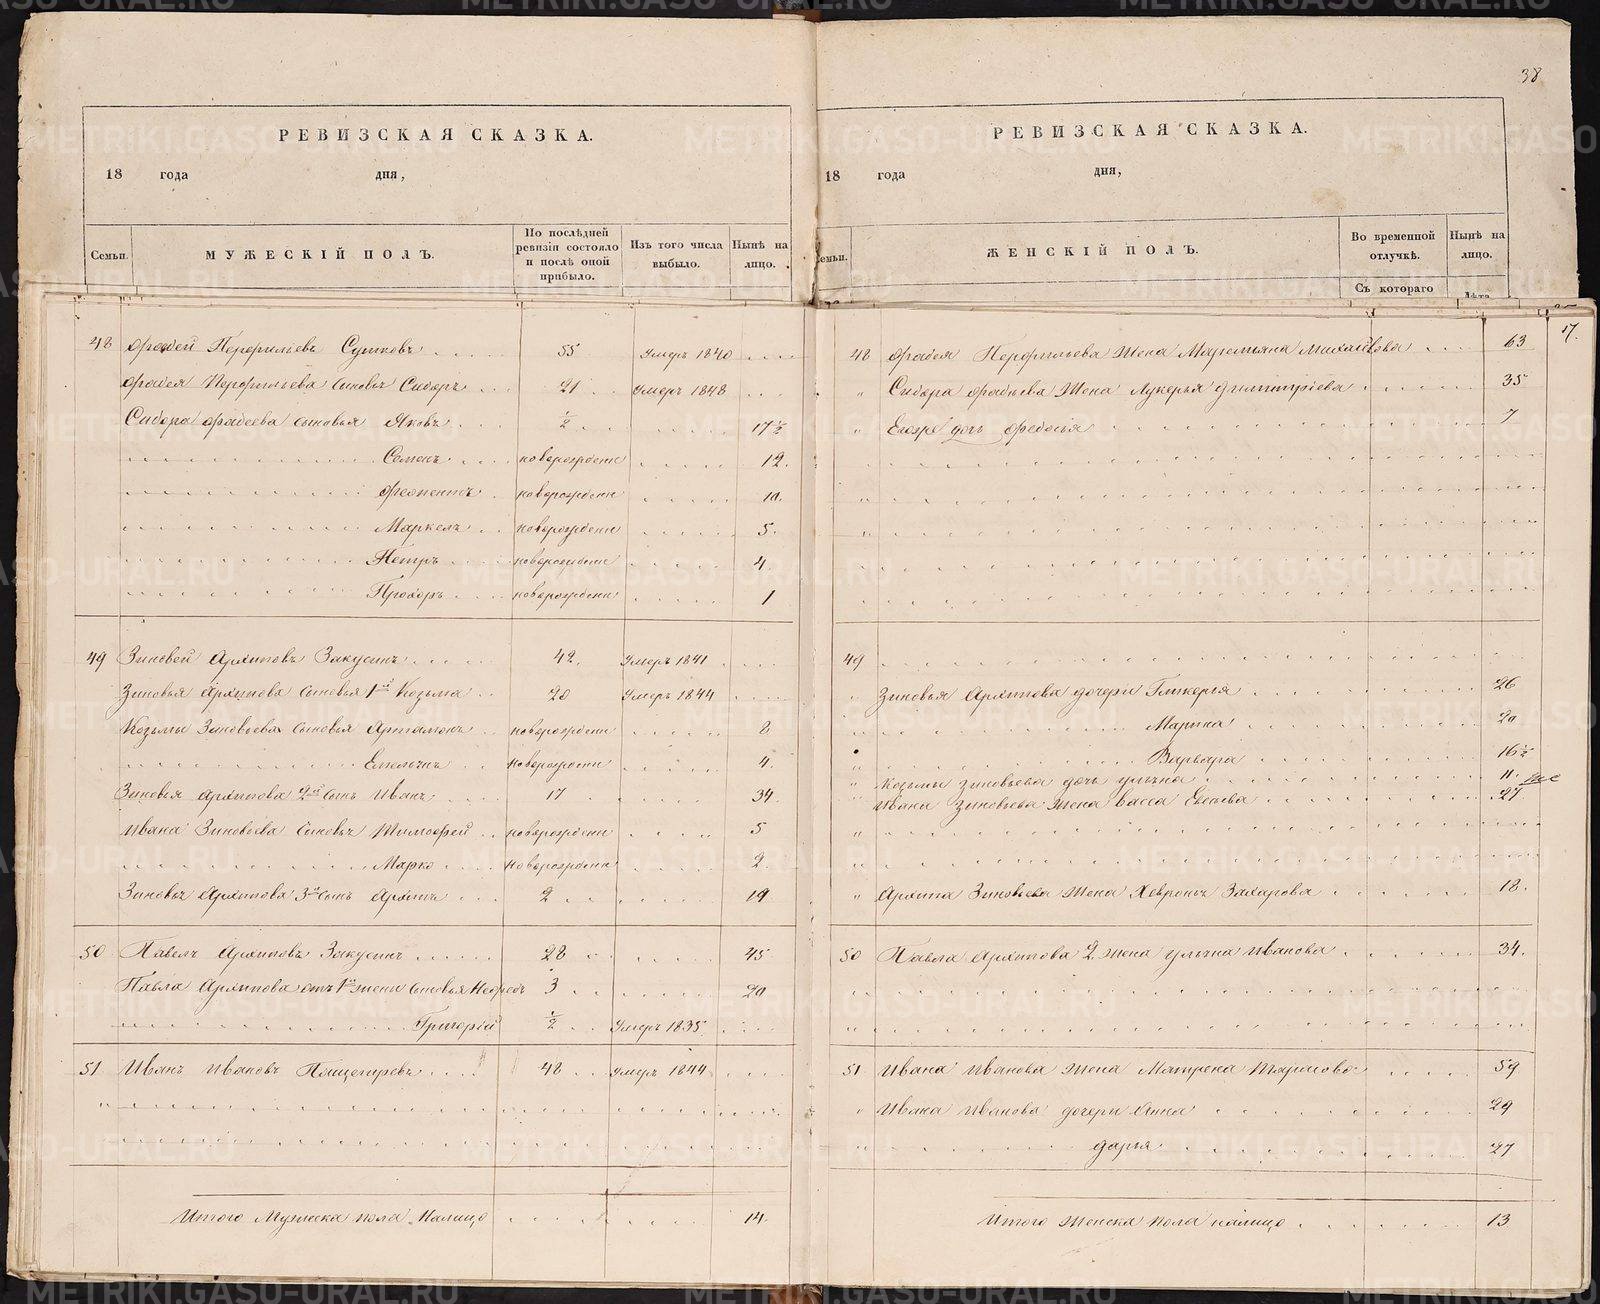 38
РЕВИЗСКАЯ СКАЗКА.
18 года дня,
Семьи. МУЖЕСКІЙ ПОЛЪ. По послѣдней ревизіи состояло и послѣ оной прибыло. Изъ того числа выбыло. Нынѣ на лицо.
48 Фадей Перфильевъ Сушковъ 55 Умеръ 1840
Фадея Перфильева сыновъ Сидоръ 21 Умеръ 1848
Сидора Фадеева сыновья Яковъ ½ 17½
Семенъ новорожденн 12.
новорожденн 10.
Маркелъ новорожденн 5.
Петръ новорожденн 4.
Прохоръ новорожденн 1
49 Зиновей Архиповъ Закусинъ 42. Умеръ 1841
Зиновья Архипова сыновья 1й Козьма 20 Умеръ 1844
Козьмы Зиновьева сыновья Артамонъ новорожденн 8
новорожденн 4.
Зиновья Архипова 2й сынъ Иванъ 17 34.
Ивана Зиновьева сыновъ Тимофей новорожденн 5
Марко новорожденн 2.
Зиновья Архипова 3й сынъ Архипъ 2 19
50 Павелъ Архиповъ Закусинъ 28 45
Павла Архипова отъ 1й жены сыновья 3 20
Григорій ½ Умеръ 1835.
51 Иванъ Ивановъ 48 умеръ 1844
Итого Мужеска пола Налицо 14.
РЕВИЗСКАЯ СКАЗКА.
18 года дня,
Семьи. ЖЕНСКІЙ ПОЛЪ. Во временной отлучкѣ. Нынѣ на лицо.
Съ котораго Лѣта
17.
48 Фадея Перфильева жена Маремьяна Михайлова 63
Сидора Фадеева жена Лукерья Димитріева 35
Егоже дочь Федосья 7
49
Зиновья Архипова дочери Гликерья 26
Марина 20
Варвара 16½
Козьмы Зиновьева дочь Ульяна 11.
Ивана Зиновьева жена Васса Евсеева 27
Архипа Зиновьева жена Хевронья Захарова 18.
50 Павла Архипова 2 жена Ульяна Иванова 34.
51 Ивана Иванова жена Матрена Тарасова 59
Ивана Иванова дочери Анна 29
Дарья 27
Итого Женска пола налицо 13
METRIKI.GASO-URAL.RU